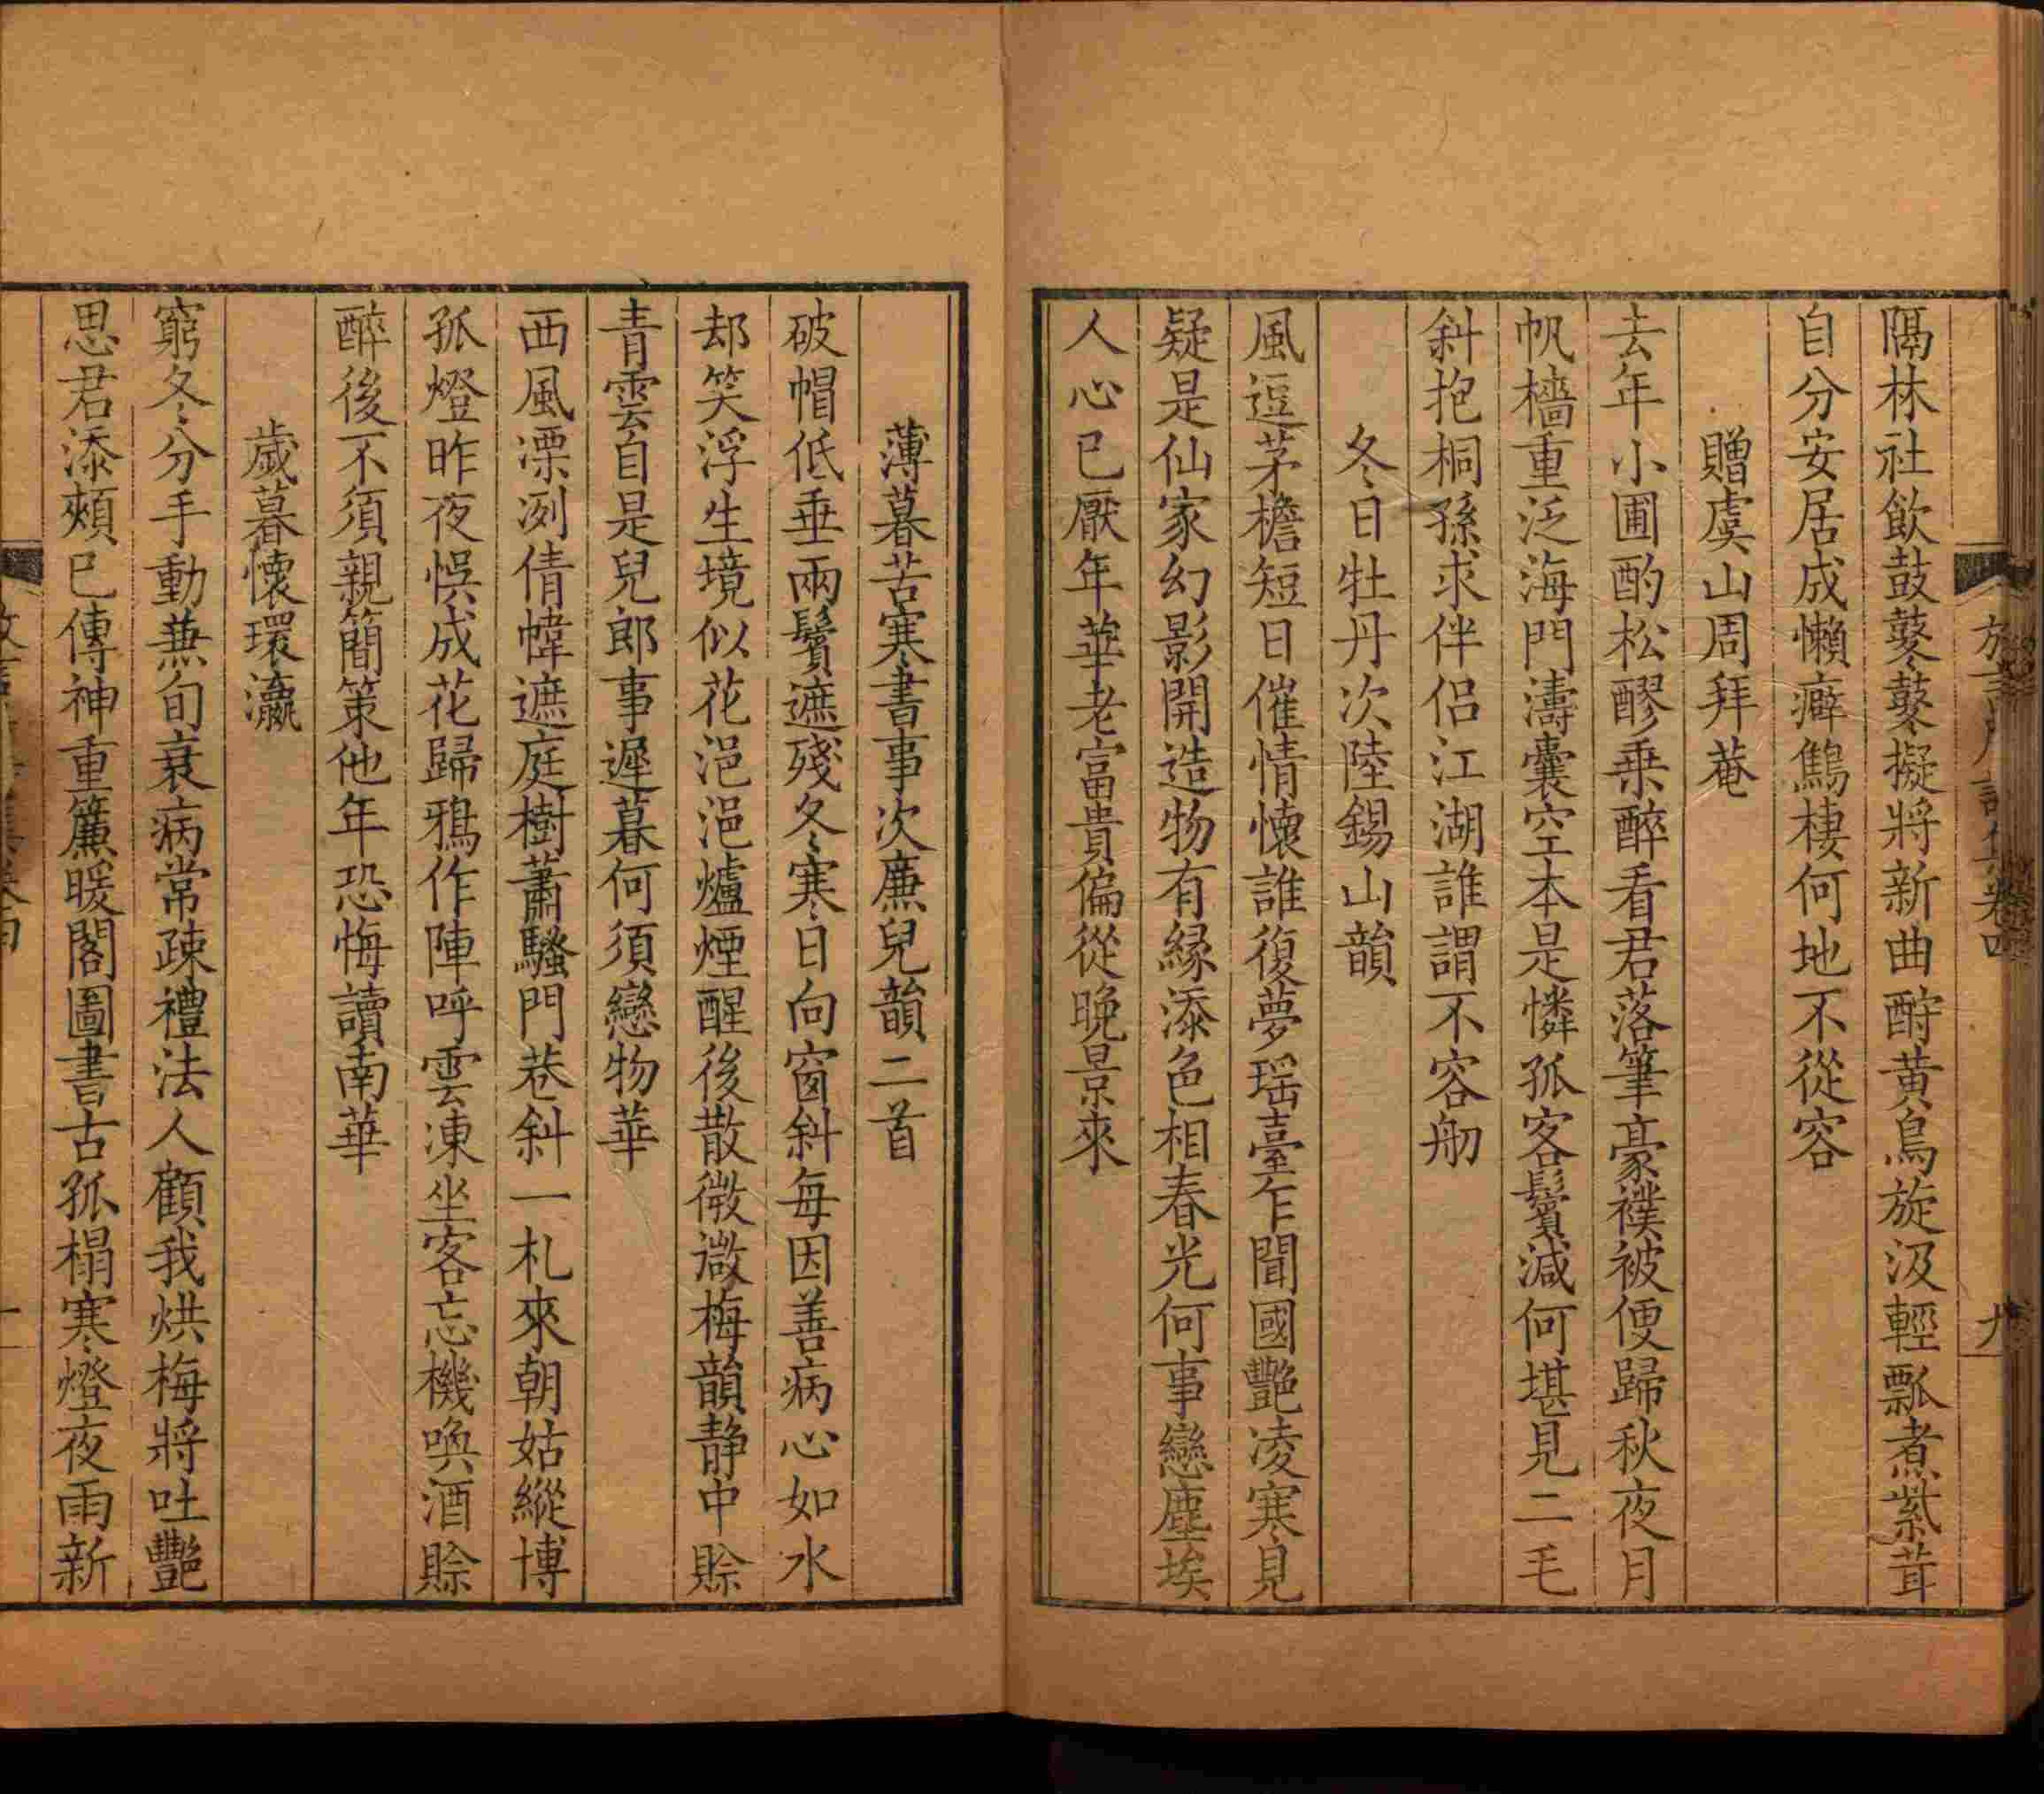 隔林社飲鼓鼕鼕擬將新曲酧黃鳥旋汲輕瓢煮紫茸
自分安居成懶癖鷦棲何地不從容
贈虞山周拜菴
去年小圃酌松醪乗醉看君落筆豪襆被便歸秋夜月
帆檣重泛海門濤囊空本是憐孤客鬢減何堪見二毛
斜抱桐孫求伴侣江湖誰謂不容舠
冬日牡丹次陸錫山韻
風逗茅檐短日催情懷誰復夢瑶臺乍聞國艷凌寒見
疑是仙家幻影開造物有緣添色相春光何事戀塵埃
人心已厭年華老富貴偏從晚景來
薄暮苦寒書事次廉兒韻二首
破帽低垂兩鬢遮殘冬寒日向窗斜每因善病心如水
却笑浮生境似花浥浥爐煙醒後散微微梅韻静中賖
青雲自是兒郎事遲暮何須戀物華
西風凓冽倩幃遮庭樹蕭騷門巷斜一札來朝姑縱博
孤燈昨夜悞成花歸鴉作陣呼雲凍坐客忘機喚酒賖
醉後不須親簡策他年恐悔讀南華
歲暮懷環瀛
窮冬分手動兼旬衰病常疎禮法人顧我烘梅將吐艷
思君添頰已傳神重簾暖閣圖書古孤榻寒燈夜雨新